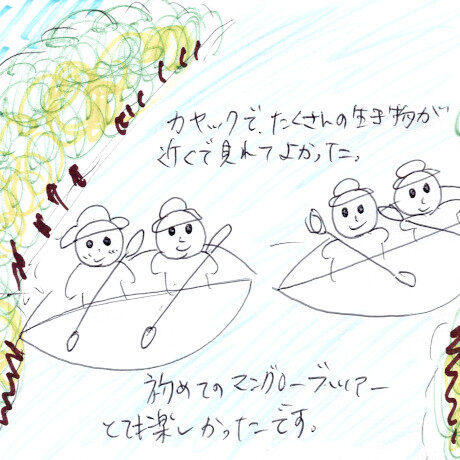 カヤックで、たくさんの生き物が
近くで見れてよかった。
初めてのマングローブツアー
とても楽しかったです。